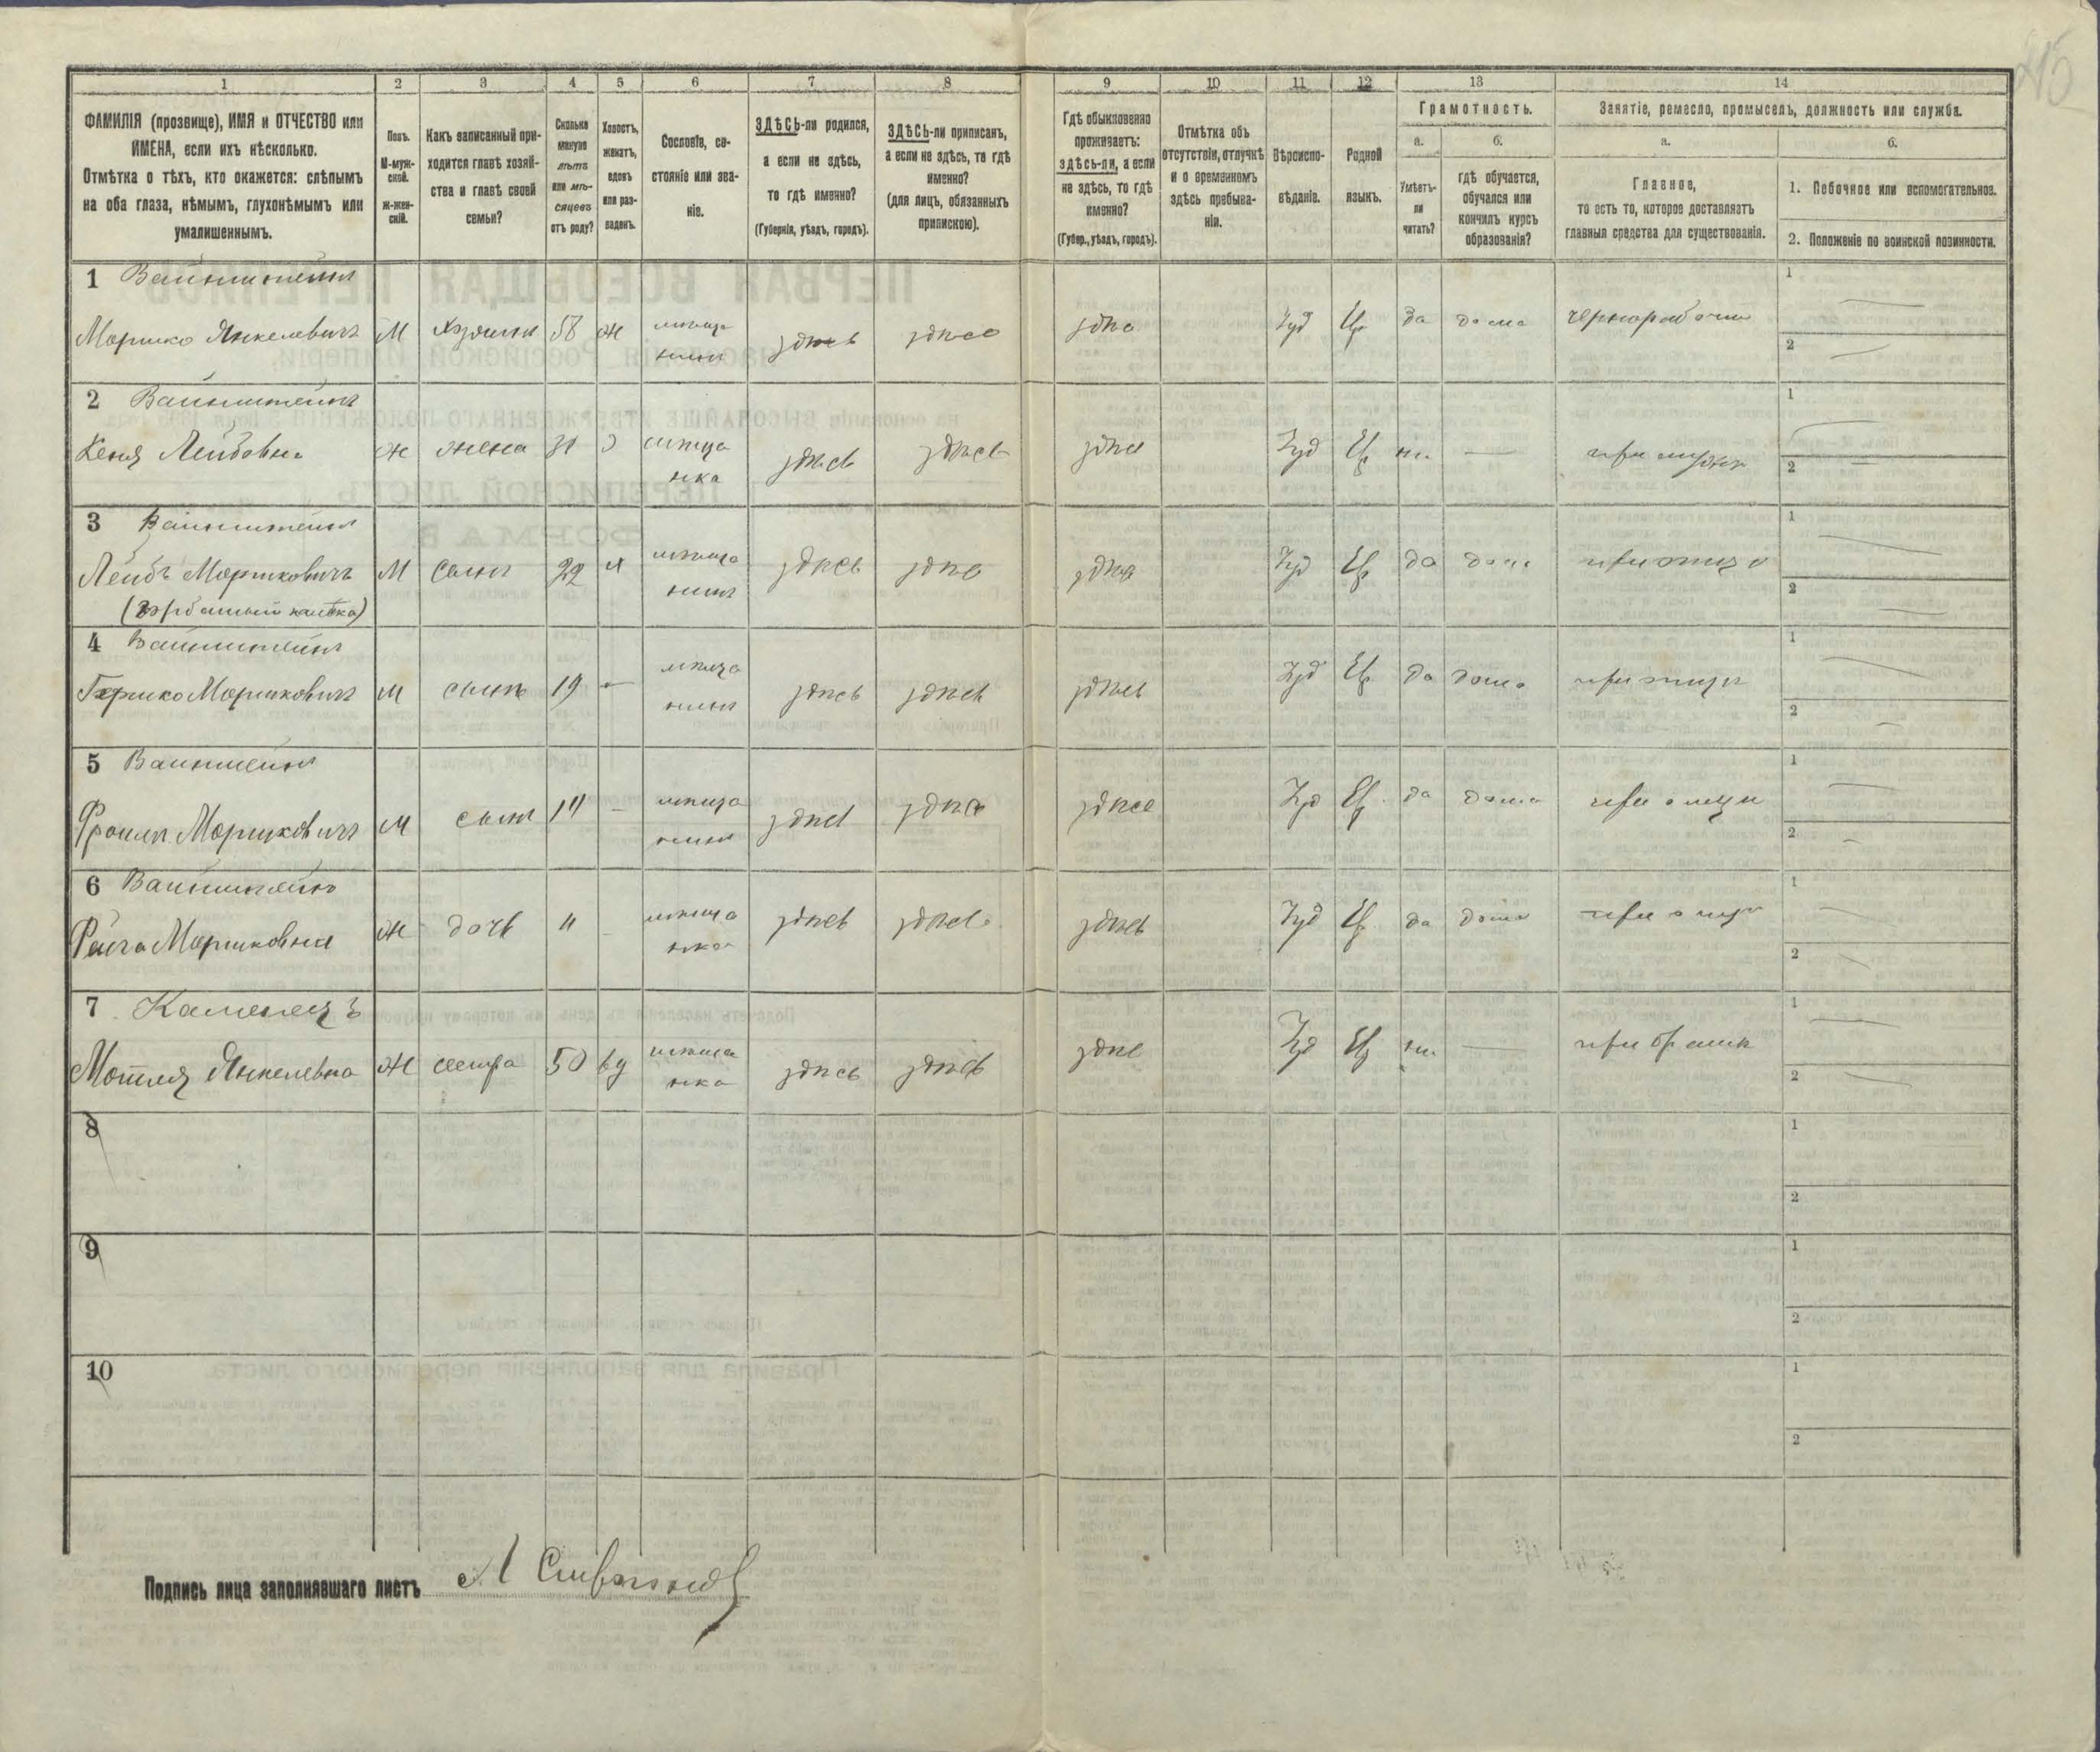 1
2
3
4
5
6
7
8
9
10
11
12
13
14
ФАМИЛІЯ (прозвище), ИМЯ и ОТЧЕСТВО или
ИМЕНА, если ихъ нѣсколько.
Отмѣтка о тѣхъ, кто окажется: слѣпымъ
на оба глаза, нѣмымъ, глухонѣмымъ или
умалишеннымъ.
Полъ.
М-муж-
ской.
ж-жен-
скій.
Какъ записанный при-
ходится главѣ хозяй-
ства и главѣ своей
семьи?
Сколько
минуло
лѣтъ
или мѣ-
сяцевъ
отъ роду?
Холостъ,
женатъ,
вдовъ
или раз-
веденъ.
Сословіе, со-
стояніе или зва-
ніе.
ЗДѢСЬ-ли родился,
а если не здѣсь,
то гдѣ именно?
(Губернія, уѣздъ, городъ).
ЗДѢСЬ-ли приписанъ,
а если не здѣсь, то гдѣ
именно?
(для лицъ, обязанныхъ
припискою).
Гдѣ обыкновенно
проживаетъ:
здѣсь-ли, а если
не здѣсь, то гдѣ
именно?
(Губер., уѣздъ, городъ).
Отмѣтка объ
отсутствіи, отлучкѣ
и о временномъ
здѣсь пребыва-
ніи.
Вѣроиспо-
вѣданіе.
Родной
языкъ.
Грамотность.
а.
Умѣетъ-
ли
читать?
б.
гдѣ обучается,
обучался или
кончилъ курсъ
образованія?
Занятіе, ремесло, промыселъ, должность или служба.
а.
Главное,
то есть то, которое доставляетъ
главныя средства для существованія.
б.
1. Побочное или вспомогательное.
2. Положеніе по воинской повинности.
1 Вайнштейнъ
Моршко Янкелевичъ М хозяинъ 58 ж мѣща нинъ здѣсь здѣсь здѣсь Іуд Евр да дома чернорабочій 1 — 2 —
2 Вайнштейнъ
Кеня Лейбовна ж жена з мѣща нка здѣсь здѣсь здѣсь Іуд Евр нѣ. — при мужѣ 1 — 2 —
3 Вайнштейнъ
Лейбъ Моршковичъ М сынъ 22 х мѣща нинъ здѣсь здѣсь здѣсь Іуд Евр да дома при отцѣ 1 — 2 —
(горбатый калѣка)
4 Вайнштейнъ
Гершко Моршковичъ М сынъ 19 — мѣща нинъ здѣсь здѣсь здѣсь Іуд Евр да дома при отцѣ 1 — 2 —
5 Вайнштейнъ
Фроимъ Моршковичъ М сынъ 14 — мѣща нинъ здѣсь здѣсь здѣсь Іуд Евр да дома при отцѣ 1 — 2 —
6 Вайнштейнъ
Моршковна ж дочь 11 — мѣща нка здѣсь здѣсь здѣсь Іуд Евр да дома при отцѣ 1 — 2 —
7 Каменецъ
Мотля Янкелевна ж сестра 50 вд мѣща нка здѣсь здѣсь здѣсь Іуд Евр нѣ. — при братѣ 1 — 2 —
8 1 2
9 1 2
10 1 2
Подпись лица заполнявшаго листъ